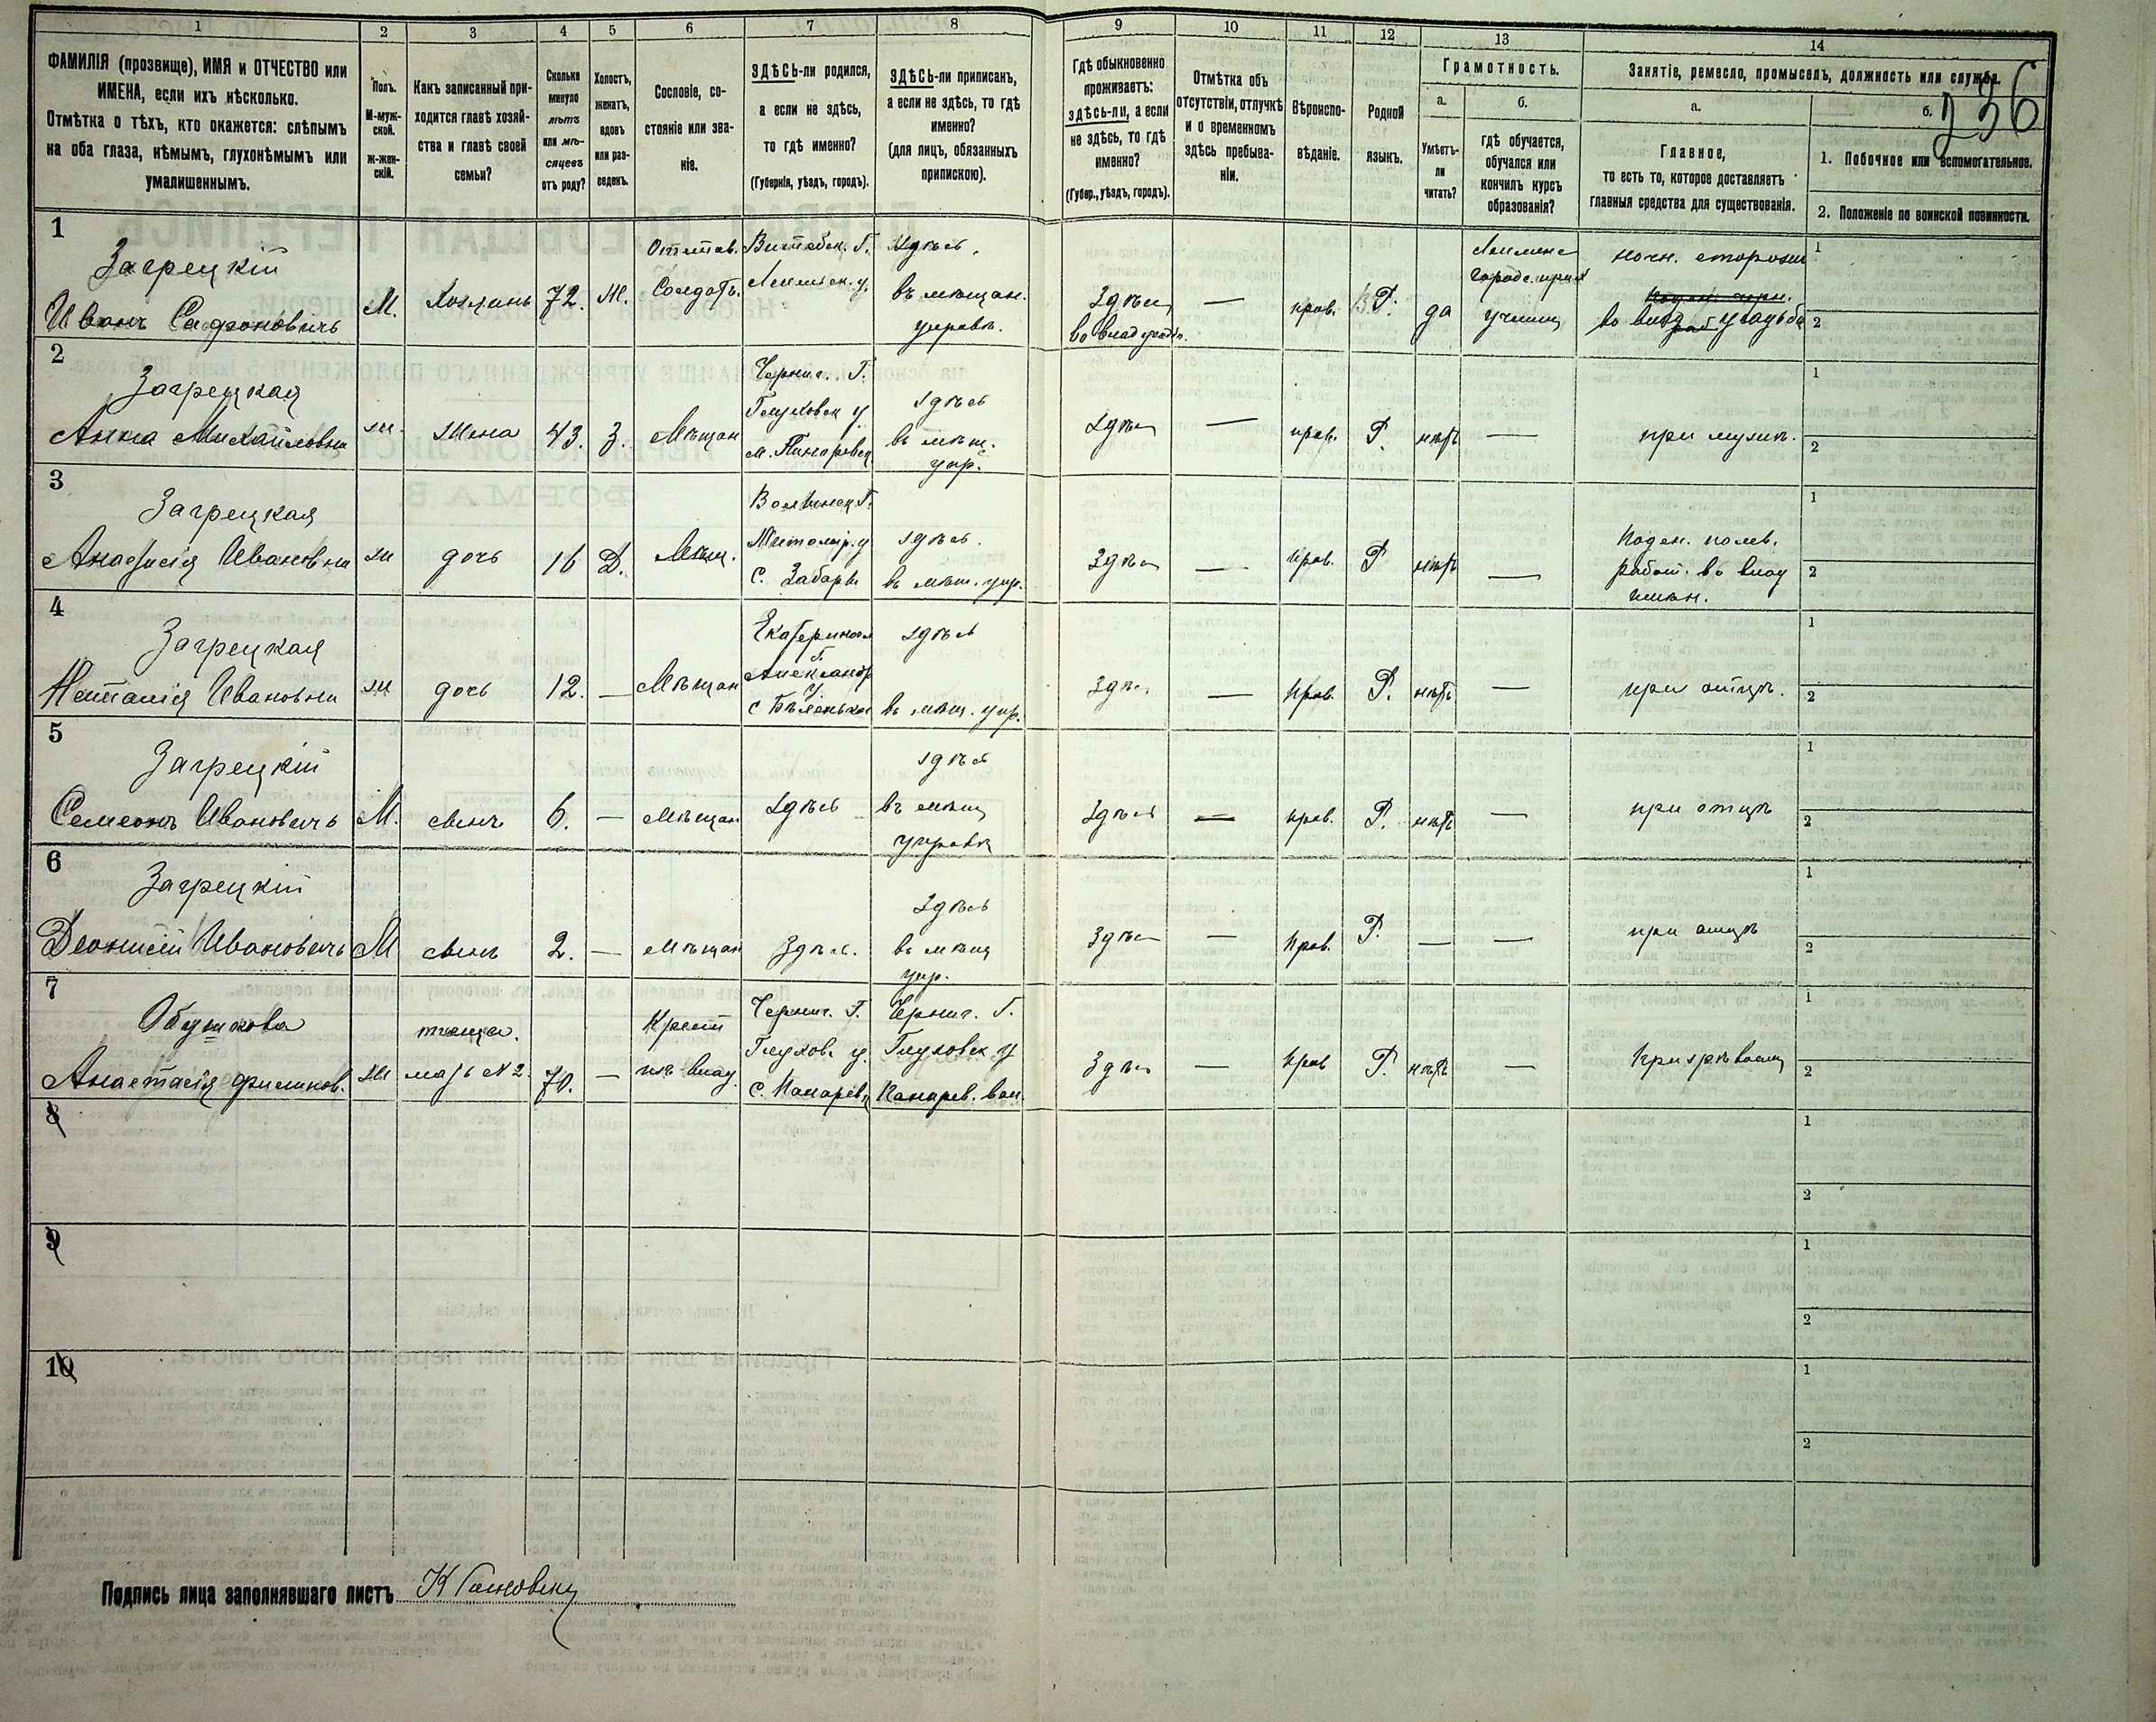 1 2 3 4 5 6 7 8 9 10 11 12 13 14
ФАМИЛІЯ (прозвище), ИМЯ и ОТЧЕСТВО или
ИМЕНА, если ихъ нѣсколько.
Отмѣтка о тѣхъ, кто окажется: слѣпымъ
на оба глаза, нѣмымъ, глухонѣмымъ или
умалишеннымъ.
Полъ.
М-муж-
ской.
Ж-жен-
скій.
Какъ записанный при-
ходится главѣ хозяй-
ства и главѣ своей
семьи?
Сколько
минуло
лѣтъ
или мѣ-
сяцевъ
отъ роду?
Холостъ,
женатъ,
вдовъ
или раз-
веденъ.
Сословіе, со-
стояніе или зва-
ніе.
ЗДѢСЬ-ли родился,
а если не здѣсь,
то гдѣ именно?
(Губернія, уѣздъ, городъ).
ЗДѢСЬ-ли приписанъ,
а если не здѣсь, то гдѣ
именно?
(для лицъ, обязанныхъ
припискою).
Гдѣ обыкновенно
проживаетъ:
здѣсь-ли, а если
не здѣсь, то гдѣ
именно?
(Губер., уѣздъ, городъ).
Отмѣтка объ
отсутствіи, отлучкѣ
и о временномъ
здѣсь пребыва-
ніи.
Вѣроиспо-
вѣданіе.
Родной
языкъ.
Грамотность.
а.
Умѣетъ-
ли
читать?
б.
гдѣ обучается,
обучался или
кончилъ курсъ
образованія?
Занятіе, ремесло, промыселъ, должность или служба.
236
а.
Главное,
то есть то, которое доставляетъ
главныя средства для существованія.
б.
1. Побочное или вспомогательное.
2. Положеніе по воинской повинности.
1
Загрецкій
Иванъ Сафоновичъ
М. Хозяинъ 72. Ж.
Отстав.
Солдатъ.
Витебск. Г.
Лепельск. у.
Здѣсь,
въ мѣщан.
управѣ.
Здѣсь
— прав. Р. да
Городс. приход
Училищ
ночн. сторожъ
1
2
2
Загрецкая
Анна Михайловна
ж. жена 43. З. Мѣщан
Черниг. Г.
Глуховск у.
здѣсь
въ мѣщ.
упр.
Здѣсь — прав. Р. нѣтъ —
при мужѣ.
1
2
3
Загрецкая
Анафисія Ивановна
ж дочь 16 Д. Мѣщ.
Волынск Г.
Житомір. у
с. Забары
здѣсь.
въ мѣщ. упр.
Здѣсь — прав. Р нѣтъ —
Поден. полев.
работ. во влад
имѣн.
1
2
4
Загрецкая
Наталія Ивановна
ж дочь 12. — Мѣщан
Екатеринося
Г.
Александр
У.
с Бѣленькое
здѣсь
въ мѣщ. упр.
Здѣсь — прав. Р. нѣтъ —
при отцѣ.
1
2
5
Загрецкій
Семеонъ Ивановичъ
М. сынъ 6. — Мѣщан Здѣсь
здѣсь
въ мѣщ
управѣ
Здѣсь — прав. Р. нѣтъ —
при отцѣ
1
2
6
Загрецкій
Деонисій Ивановичъ
М сынъ 2. — Мѣщан Здѣсь.
Здѣсь
въ мѣщ
упр.
Здѣсь — прав. Р. — —
при отцѣ
1
2
7
Обушкова
Анастасія Филипов.
ж
теща.
мать № 2.
70. —
Крест
изъ влад.
Черниг. Г.
Глухов. у.
Черниг. Г.
Глуховск у
Здѣсь — прав Р. нѣтъ —
1
2
8
1
2
9
1
2
10
1
2
Подпись лица заполнявшаго листъ